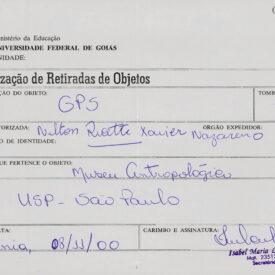 inistério da Educação
NIVERSIDADE FEDERAL DE GOIÁS
NIDADE:
ização de Retiradas de Objetos
ÇÃO DO OBJETO: TOMB
GPS
TORIZADA: Nilton Ricetti Xavier Nazareno
ÓRGÃO EXPEDIDOR:
O DE IDENTIDADE:
QUE PERTENCE O OBJETO:
Museu Antropológico
USP - São Paulo
ATA: CARIMBO E ASSINATURA:
nia, 08/11/00
Isabel Maria
Mat. 235
Secretári